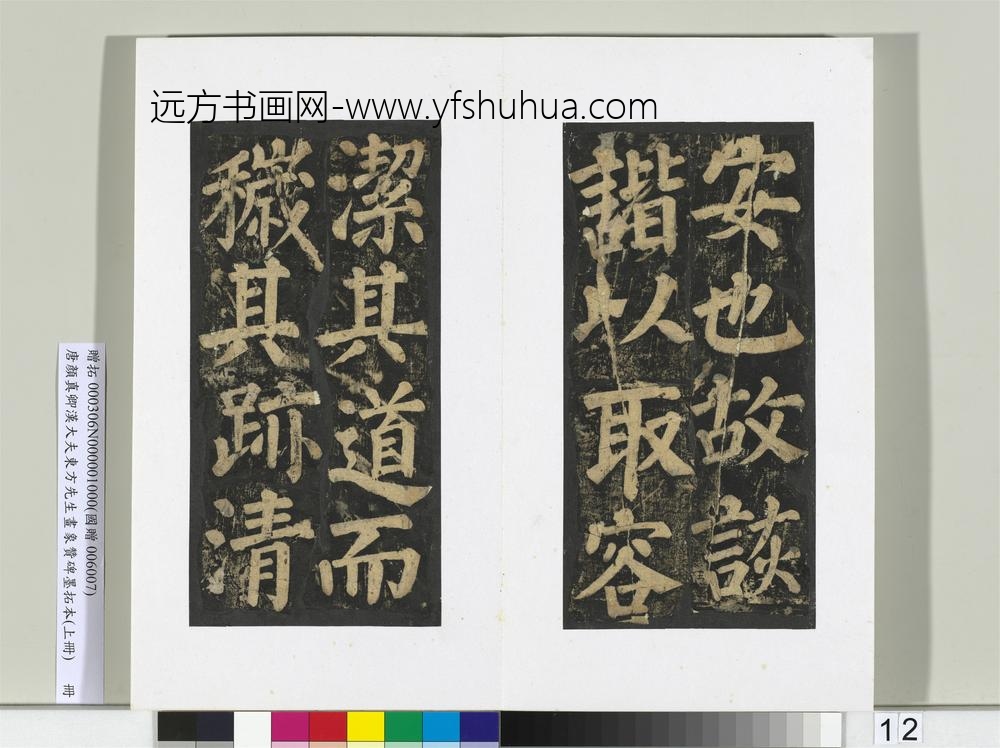 远方书画网-www.yfshuhua.com
安也故詼
諧以取容
潔其道而
穢其跡清
贈拓 000306N000001000(國贈 006007)
唐顏真卿漢大夫東方先生畫象贊碑墨拓本(上冊) 冊
12